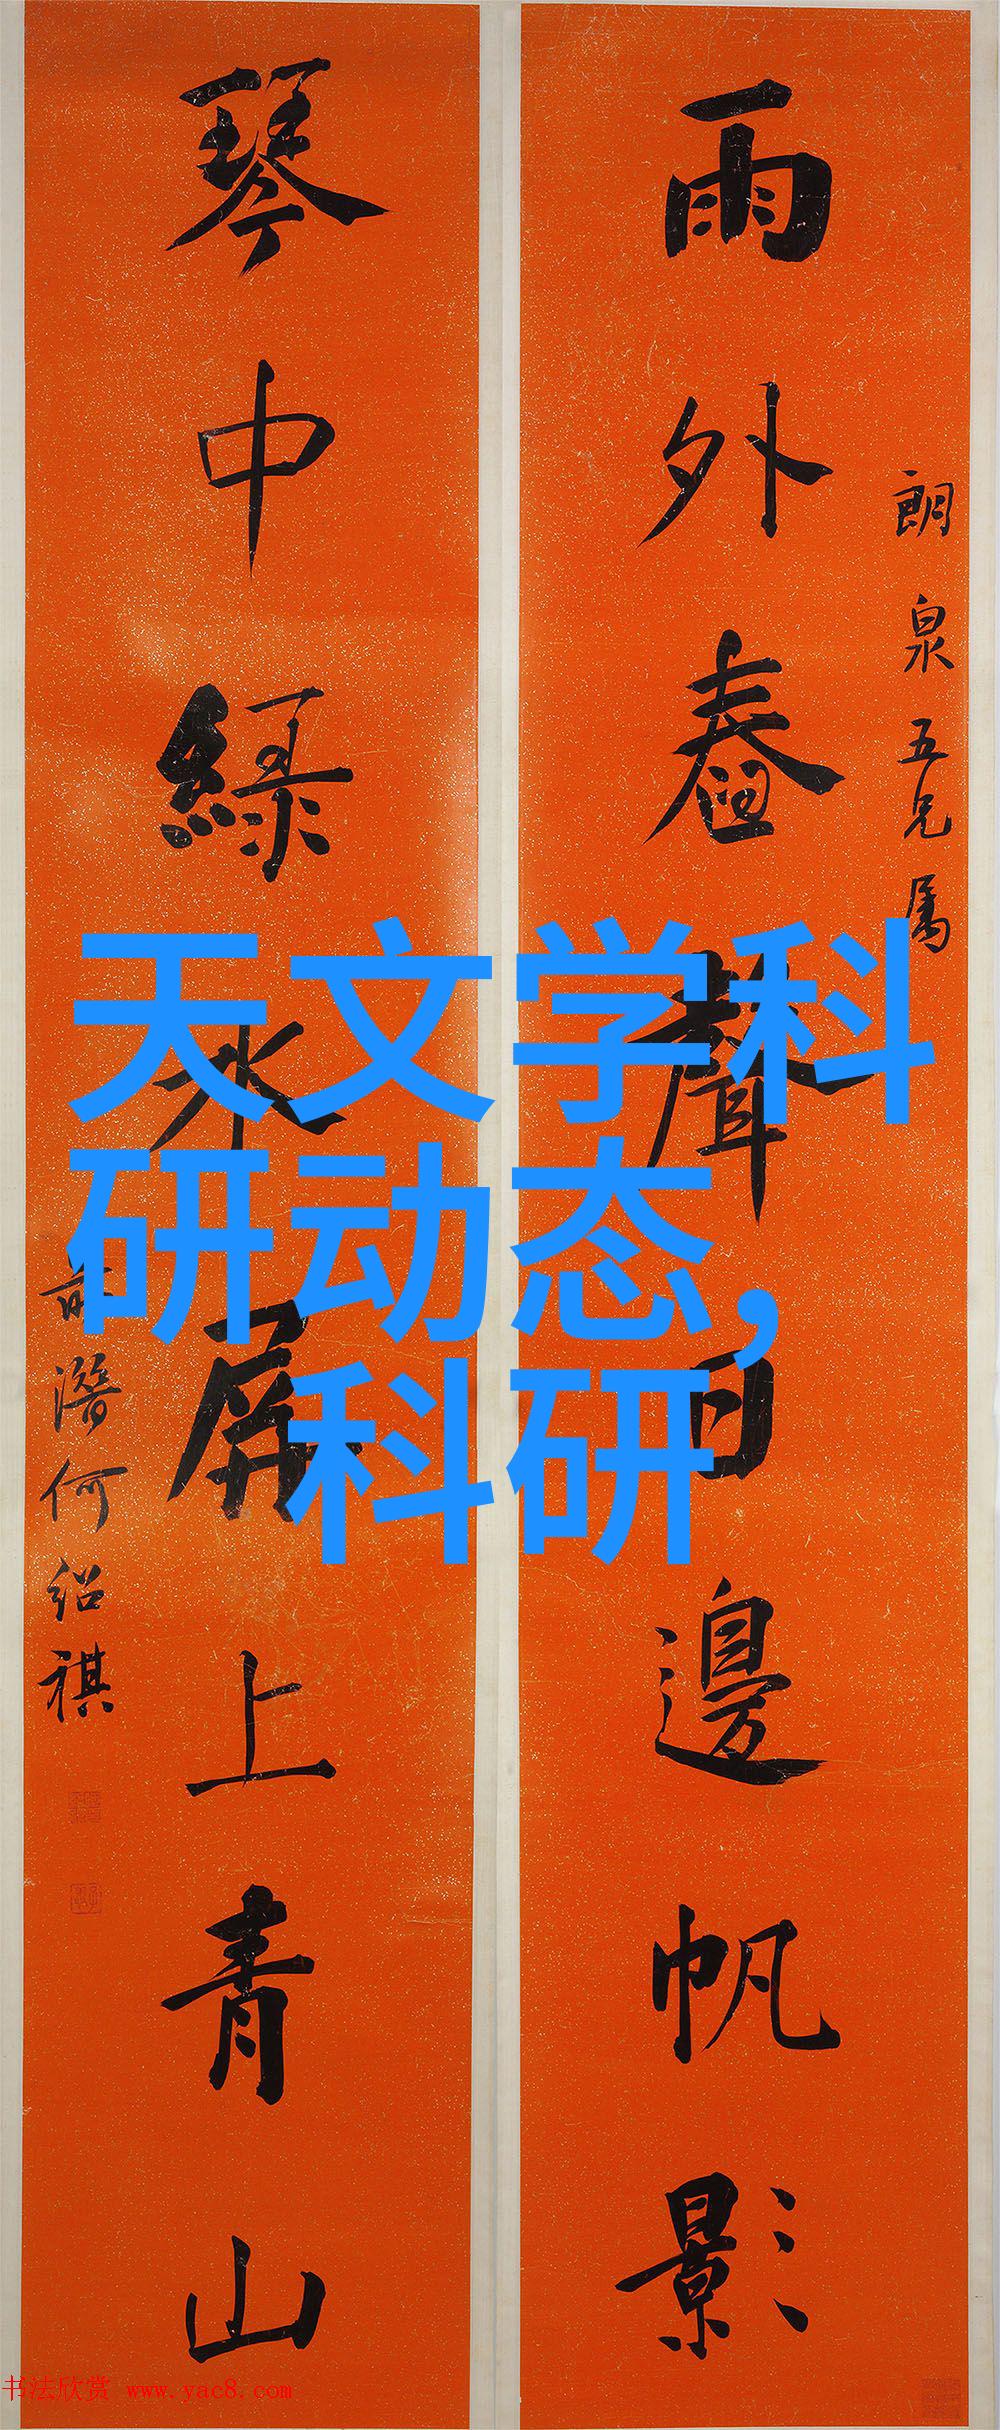 朗泉五兄屬
雨外舂聲日邊帆影
琴中綠水屏上青山
潛何紹祺
天文学科
研动态，
科研
书法欣赏 www.yac8.com